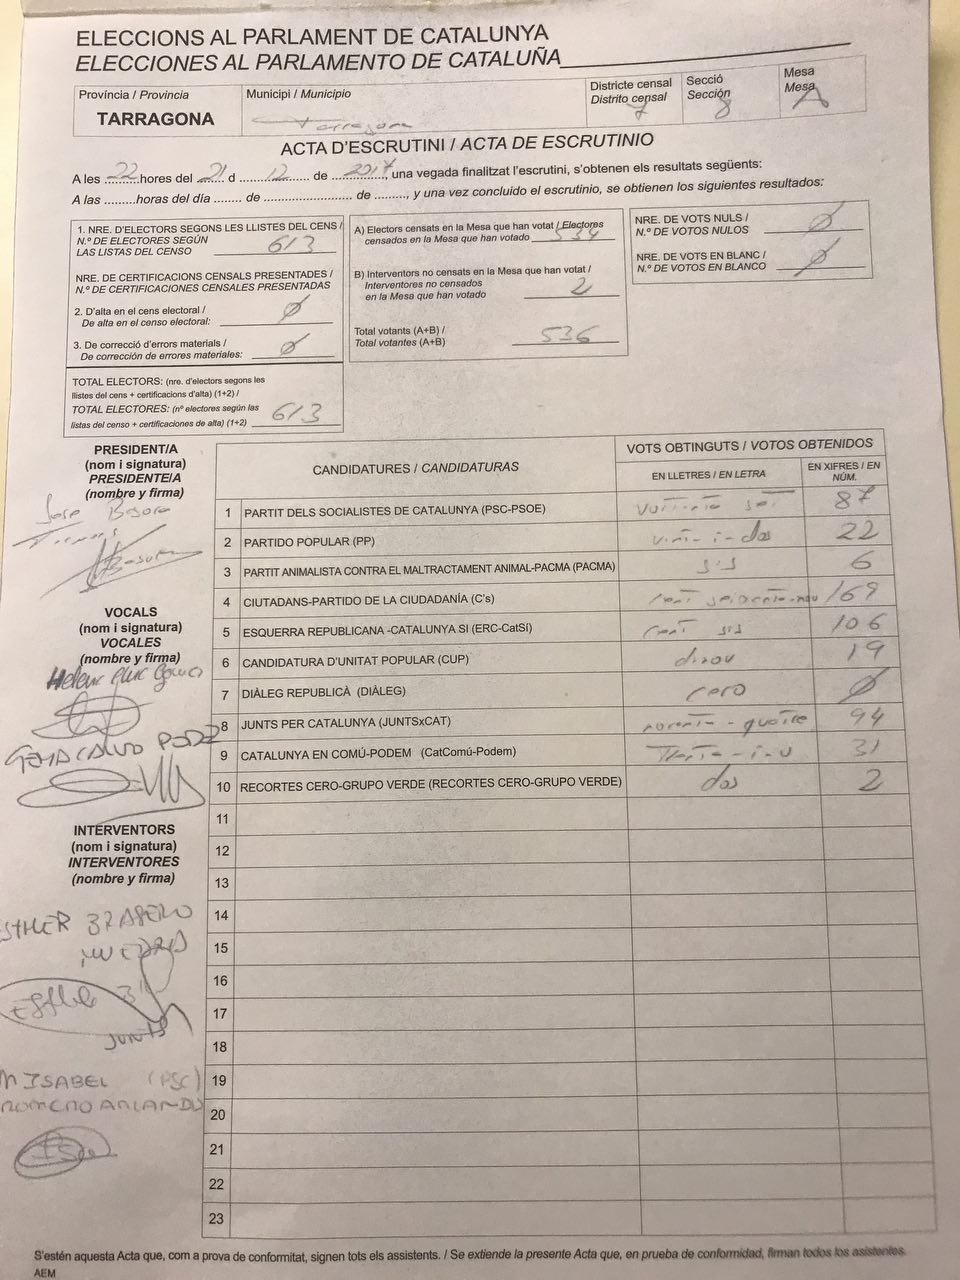 ELECCIONS AL PARLAMENT DE CATALUNYA
ELECCIONES AL PARLAMENTO DE CATALUÑA
Província / Provincia
TARRAGONA
Municipi / Municipio
Tarragona
Districte censal
Distrito censal
7
Secció
Sección
8
Mesa
Mesa
A
ACTA D'ESCRUTINI / ACTA DE ESCRUTINIO
A les 22 hores del 21 d 12 de 2017, una vegada finalitzat l'escrutini, s'obtenen els resultats següents:
A las ......... horas del día ........ de ........................ de ........, y una vez concluido el escrutinio, se obtienen los siguientes resultados:
1. NRE. D'ELECTORS SEGONS LES LLISTES DEL CENS /
N.º DE ELECTORES SEGÚN
LAS LISTAS DEL CENSO 613
NRE. DE CERTIFICACIONS CENSALS PRESENTADES /
N.º DE CERTIFICACIONES CENSALES PRESENTADAS
2. D'alta en el cens electoral /
De alta en el censo electoral: Ø
3. De correcció d'errors materials /
De corrección de errores materiales: Ø
TOTAL ELECTORS: (nre. d'electors segons les
llistes del cens + certificacions d'alta) (1+2) /
TOTAL ELECTORES: (nº electores según las
listas del censo + certificaciones de alta) (1+2) 613
A) Electors censats en la Mesa que han votat / Electores
censados en la Mesa que han votado 534
B) Interventors no censats en la Mesa que han votat /
Interventores no censados
en la Mesa que han votado 2
Total votants (A+B) /
Total votantes (A+B) 536
NRE. DE VOTS NULS /
N.º DE VOTOS NULOS Ø
NRE. DE VOTS EN BLANC /
N.º DE VOTOS EN BLANCO Ø
PRESIDENT/A
(nom i signatura)
PRESIDENTE/A
(nombre y firma)
Jose
VOCALS
(nom i signatura)
VOCALES
(nombre y firma)
INTERVENTORS
(nom i signatura)
INTERVENTORES
(nombre y firma)
JUNTS
ISABEL (PSC)
ROMERO
CANDIDATURES / CANDIDATURAS
VOTS OBTINGUTS / VOTOS OBTENIDOS
EN LLETRES / EN LETRA
EN XIFRES / EN NÚM.
1 PARTIT DELS SOCIALISTES DE CATALUNYA (PSC-PSOE) 87
2 PARTIDO POPULAR (PP) vint-i-dos 22
3 PARTIT ANIMALISTA CONTRA EL MALTRACTAMENT ANIMAL-PACMA (PACMA) sis 6
4 CIUTADANS-PARTIDO DE LA CIUDADANÍA (C's) 169
5 ESQUERRA REPUBLICANA -CATALUNYA SI (ERC-CatSí) cent sis 106
6 CANDIDATURA D'UNITAT POPULAR (CUP) dinou 19
7 DIÀLEG REPUBLICÀ (DIÀLEG) cero Ø
8 JUNTS PER CATALUNYA (JUNTSxCAT) noranta-quatre 94
9 CATALUNYA EN COMÚ-PODEM (CatComú-Podem) 31
10 RECORTES CERO-GRUPO VERDE (RECORTES CERO-GRUPO VERDE) dos 2
11
12
13
14
15
16
17
18
19
20
21
22
23
S'estén aquesta Acta que, com a prova de conformitat, signen tots els assistents. / Se extiende la presente Acta que, en prueba de conformidad, firman todos los asistentes.
AEM